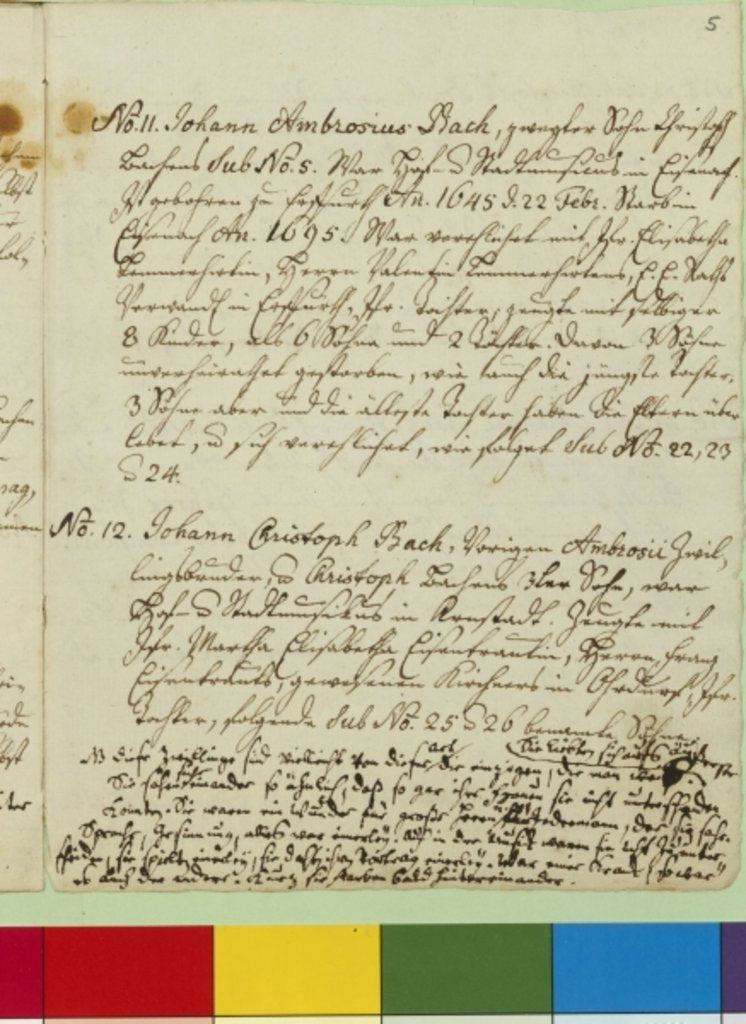 5
No. 11. Johann Ambrosius Bach, zweyter Sohn Christoph
Bachens sub No. 5. War Hof- u Stadtmusicus in Eisenach.
Ist gebohren zu Erffurth An. 1645 d. 22 Febr. Starb in
Eisenach An. 1695. War verehlichet mit Jfr. Elisabetha
Lemmerhirtin, Herrn Valentin Lemmerhirtens, E. E. Raths
Verwandt in Erffurth, Jfr. Tochter, zeugte mit selbiger
8 Kinder, als 6 Söhne und 2 Töchter. Davon 3 Söhne
unverheirathet gestorben, wie auch die jüngste Tochter,
3 Söhne aber und die älteste Tochter haben die Eltern über
lebet, u sich verehlichet, wie folget sub No. 22, 23
u 24.
No. 12. Johann Christoph Bach, Vorigen Ambrosii Zwil„
lingsbruder, u Christoph Bachens 3ter Sohn, war
Hof- u Stadtmusikus in Arnstadt. Zeugte mit
Jfr. Martha Elisabetha Eisentrautin, Herrn Franz
Eisentrauts, gewesenen Kirchners in Ohrdurf, Jfr.
Tochter, folgende sub No. 25 u 26 benamte Söhne.
NB diese Zwillinge sind vielleicht von dieser art die einzigen, die man
Sie liebten sich aufs äußerste
Sie sahen einander so ähnlich, daß so gar ihre Frauen sie nicht unterscheiden
konten. Sie waren ein Wunder für große Herren u für Jedermann, der sie sahe.
Sprache, Gesinnung, alles war einerley. Auch in der Musik waren sie nicht zu unter„
scheiden, sie spielten einerley, sie dachten ihren Vortrag einerley. War einer krank, so war
es auch der andere. Kurz sie starben bald hintereinander.